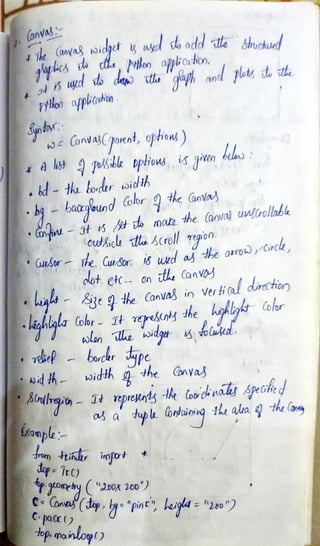 2. Canvas:-
* The Canvas widget is used to add the structured
graphics to the python application.
* It is used to draw the graph and plots to the
python application.
Syntax:-
w = Canvas(parent, options)
* A list of possible options, is given below:
• bd - the border width
• bg - background Color of the Canvas
• Confine - It is set to make the Canvas unscrollable
outside the scroll region.
• Cursor - The Cursor is used as the arrow, circle,
dot etc... on the Canvas
• height - Size of the Canvas in vertical direction
• highlight Color - It represents the highlight Color
when the widget is focused.
• relief - border type
• width - width of the Canvas
• Scrollregion - It represents the coordinates specified
as a tuple Containing the area of the Canvas
Example:-
from tkinter import *
top = Tk()
top.geometry("200x200")
C = Canvas(top, bg="pink", height="200")
C.pack()
top.mainloop()